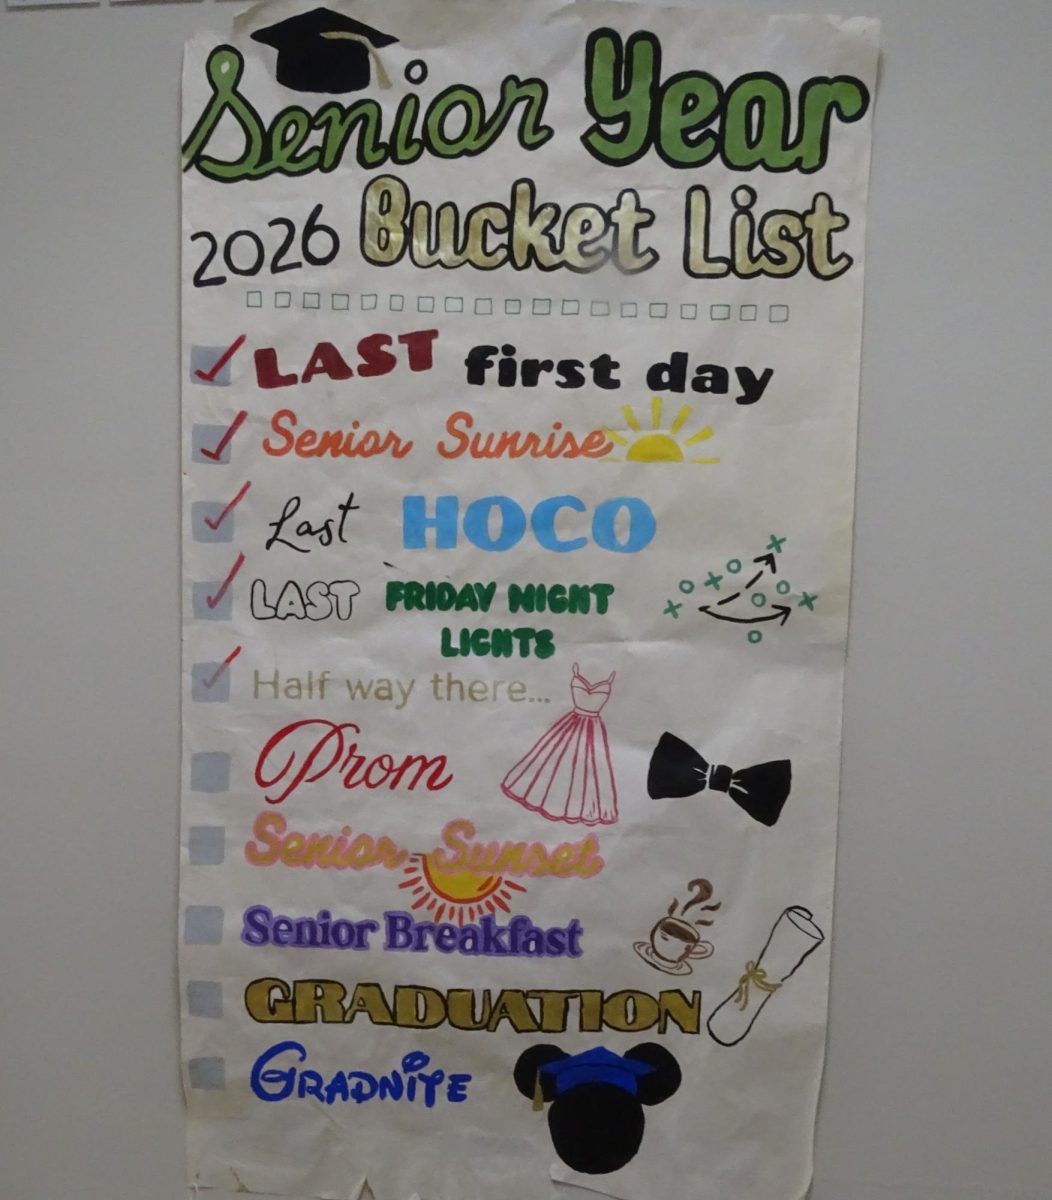 Senior Year
2026 Bucket List
LAST first day
Senior Sunrise
Last HOCO
LAST FRIDAY NIGHT
LIGHTS
Half way there...
Prom
Senior Sunset
Senior Breakfast
GRADUATION
GRADNITE